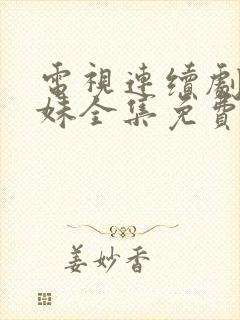 電視連續劇
妹全集免費
姜妙香